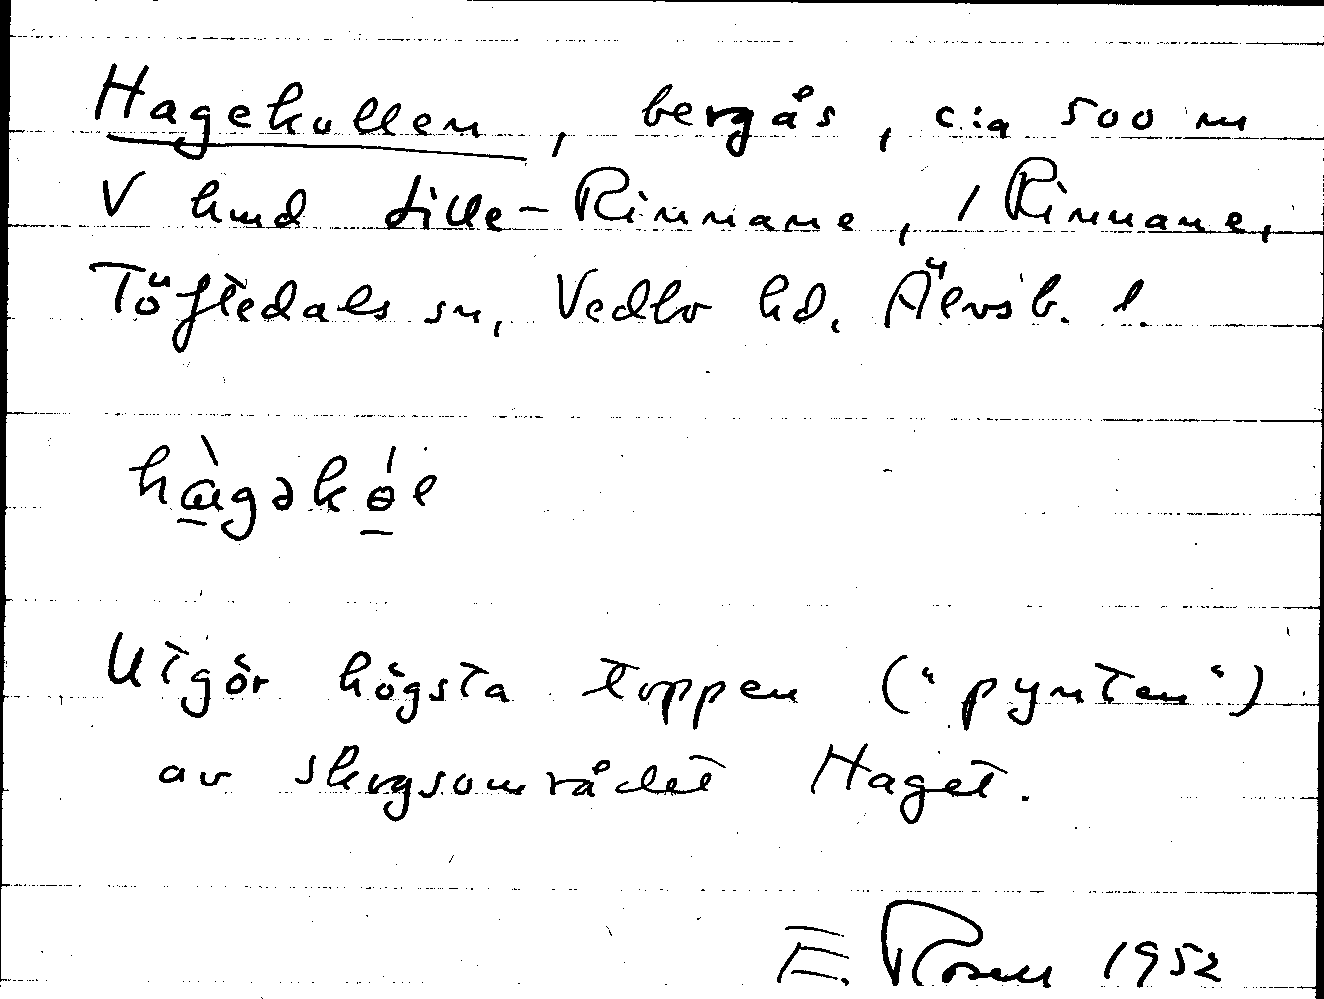 Hagekullen, bergås, c:a 500 m
V hmd Lille-Rinnane, 1 Rinnane,
Töftedals sn, Vedbo hd, Älvsb. l.
Utgör högsta toppen ("pynten")
av skogsområdet Haget.
E. Rosell 1952